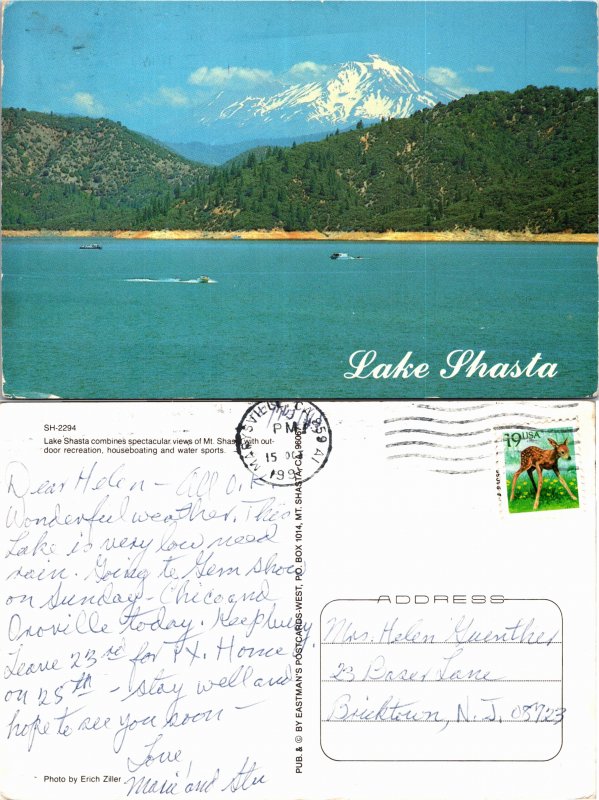 Lake Shasta
SH-2294
Lake Shasta combines spectacular views of Mt. Shasta with out-
door recreation, houseboating and water sports.
MARYSVILLE, CA 959
PM
15 OC
199
19 USA
Dear Helen - All O.K.
Wonderful weather. This
Lake is very low need
rain. Going to Gem Show
on Sunday - Chico and
Oroville today. Keep busy.
Leave 23rd for PX. Home
on 25th - Stay well and
hope to see you soon -
Love,
Marie and Stu
Photo by Erich Ziller
PUB. & © BY EASTMAN'S POSTCARDS-WEST, P.O. BOX 1014, MT. SHASTA, CA. 96067
ADDRESS
Mrs. Helen Guenther
23 Lane
Bricktown, N.J. 08723